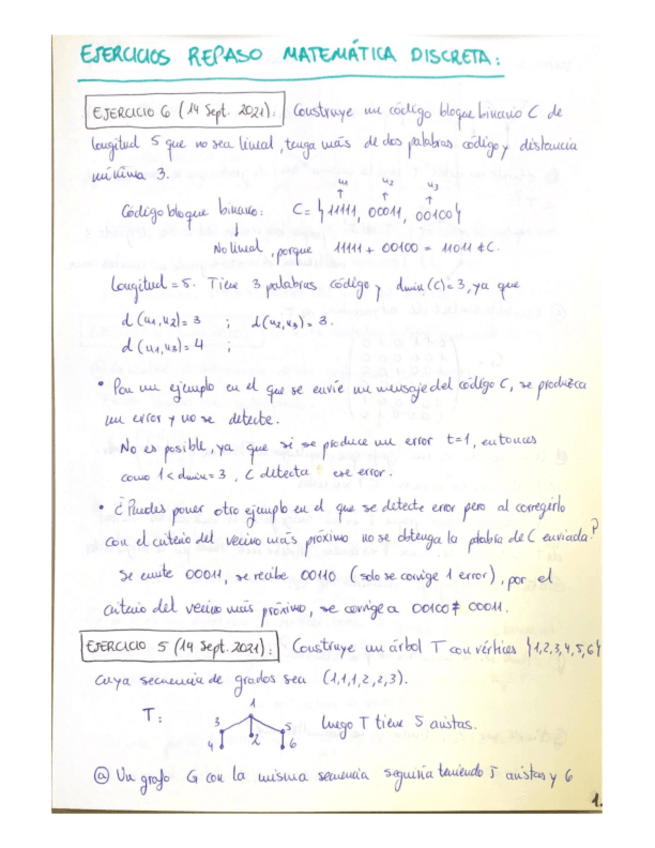 EJERCICIOS REPASO MATEMÁTICA DISCRETA:
EJERCICIO 6 (14 Sept. 2021): Construye un código bloque binario C de
longitud 5 que no sea lineal, tenga más de dos palabras código y distancia
mínima 3.
u1 u2 u3
↑ ↑ ↑
Código bloque binario: C = {11111, 00011, 00100}
↓
No lineal, porque 11111 + 00100 = 11011 ∉ C.
Longitud = 5. Tiene 3 palabras código y dmin(C) = 3, ya que
d(u1,u2) = 3 ; d(u2,u3) = 3.
d(u1,u3) = 4 ;
• Pon un ejemplo en el que se envíe un mensaje del código C, se produzca
un error y no se detecte.
No es posible, ya que si se produce un error t=1, entonces
como 1 < dmin = 3, C detecta ese error.
• ¿Puedes poner otro ejemplo en el que se detecte error pero al corregirlo
con el criterio del vecino más próximo no se obtenga la palabra de C enviada?
Se emite 00011, se recibe 00110 (solo se corrige 1 error), por el
criterio del vecino más próximo, se corrige a 00100 ≠ 00011.
EJERCICIO 5 (14 Sept. 2021): Construye un árbol T con vértices {1,2,3,4,5,6}
cuya secuencia de grados sea (1,1,1,2,2,3).
T: 1 3 5 4 2 6 luego T tiene 5 aristas.
ⓐ Un grafo G con la misma secuencia seguiría teniendo 5 aristas y 6
1.